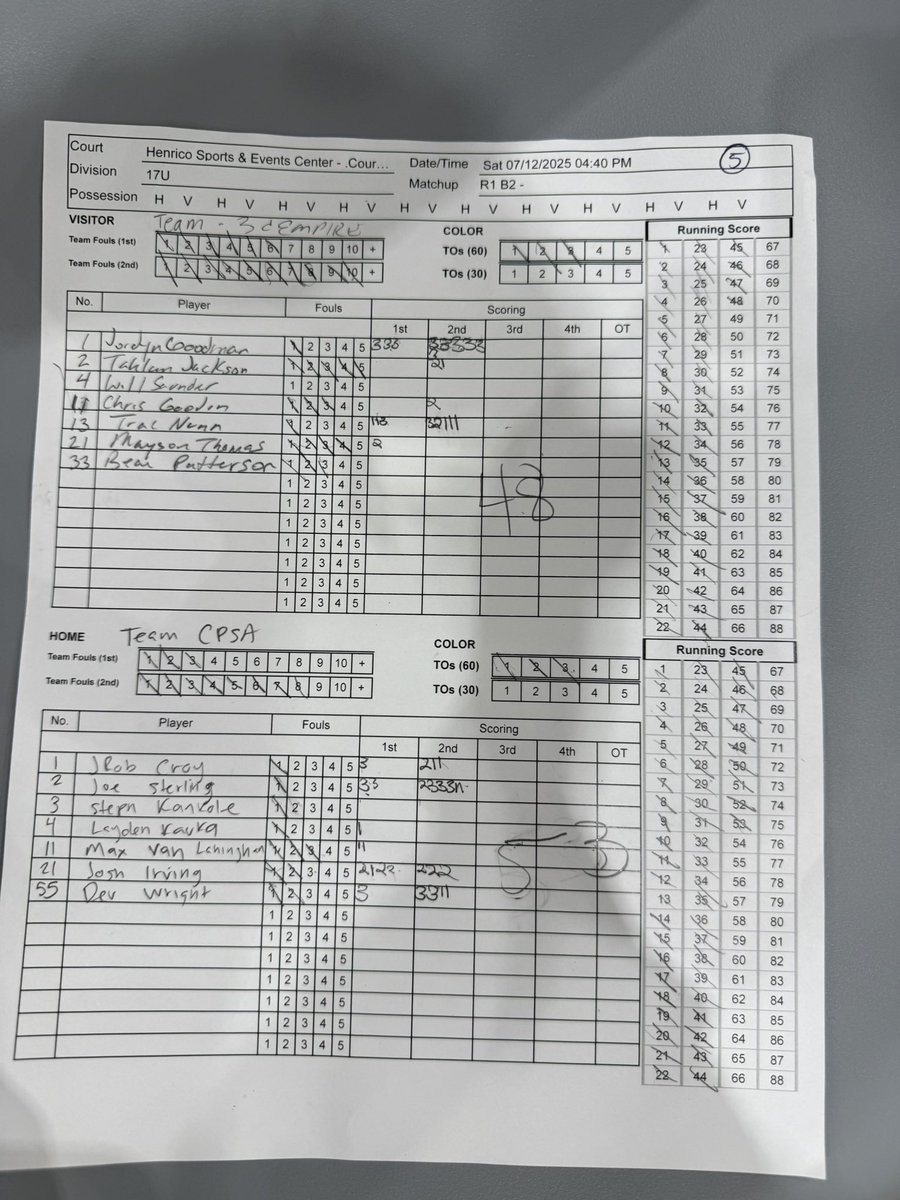 Court Henrico Sports & Events Center - .Cour... Date/Time Sat 07/12/2025 04:40 PM 5
Division 17U Matchup R1 B2 -
Possession H V H V H V H V H V H V H V H V H V H V
VISITOR Team - 3d EMPIRE COLOR Running Score
Team Fouls (1st) 1 2 3 4 5 6 7 8 9 10 + TOs (60) 1 2 3 4 5
Team Fouls (2nd) 1 2 3 4 5 6 7 8 9 10 + TOs (30) 1 2 3 4 5
No. Player Fouls Scoring
1st 2nd 3rd 4th OT
1 Jordyn Goodman 1 2 3 4 5 333 33333
3
2 Jackson 1 2 3 4 5 21
4 Will 1 2 3 4 5
11 Chris 1 2 3 4 5 2
13 Nunn 1 2 3 4 5 32111
21 Mayson Thomas 1 2 3 4 5 2
33 Beau Patterson 1 2 3 4 5
1 2 3 4 5
48
1 2 3 4 5
1 2 3 4 5
1 2 3 4 5
1 2 3 4 5
1 2 3 4 5
1 2 3 4 5
1 23 45 67
2 24 46 68
3 25 47 69
4 26 48 70
5 27 49 71
6 28 50 72
7 29 51 73
8 30 52 74
9 31 53 75
10 32 54 76
11 33 55 77
12 34 56 78
13 35 57 79
14 36 58 80
15 37 59 81
16 38 60 82
17 39 61 83
18 40 62 84
19 41 63 85
20 42 64 86
21 43 65 87
22 44 66 88
HOME Team CPSA COLOR Running Score
Team Fouls (1st) 1 2 3 4 5 6 7 8 9 10 + TOs (60) 1 2 3 4 5
Team Fouls (2nd) 1 2 3 4 5 6 7 8 9 10 + TOs (30) 1 2 3 4 5
No. Player Fouls Scoring
1st 2nd 3rd 4th OT
1 JRob Croy 1 2 3 4 5 3 211
2 Joe Sterling 1 2 3 4 5
3 Steph Kankole 1 2 3 4 5
4 Layden 1 2 3 4 5 1
11 Max Van 1 2 3 4 5 11
21 Josh Irving 1 2 3 4 5 2122 222
55 Dev Wright 1 2 3 4 5 3 3311
53
1 2 3 4 5
1 2 3 4 5
1 2 3 4 5
1 2 3 4 5
1 2 3 4 5
1 2 3 4 5
1 2 3 4 5
1 23 45 67
2 24 46 68
3 25 47 69
4 26 48 70
5 27 49 71
6 28 50 72
7 29 51 73
8 30 52 74
9 31 53 75
10 32 54 76
11 33 55 77
12 34 56 78
13 35 57 79
14 36 58 80
15 37 59 81
16 38 60 82
17 39 61 83
18 40 62 84
19 41 63 85
20 42 64 86
21 43 65 87
22 44 66 88